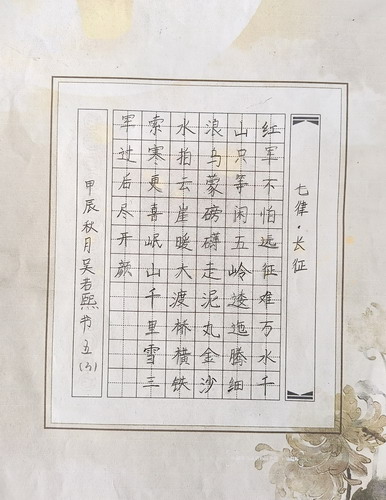 七律·长征
红军不怕远征难万水千
山只等闲五岭逶迤腾细
浪乌蒙磅礴走泥丸金沙
水拍云崖暖大渡桥横铁
索寒更喜岷山千里雪三
军过后尽开颜
甲辰秋月吴若熙书五(3)